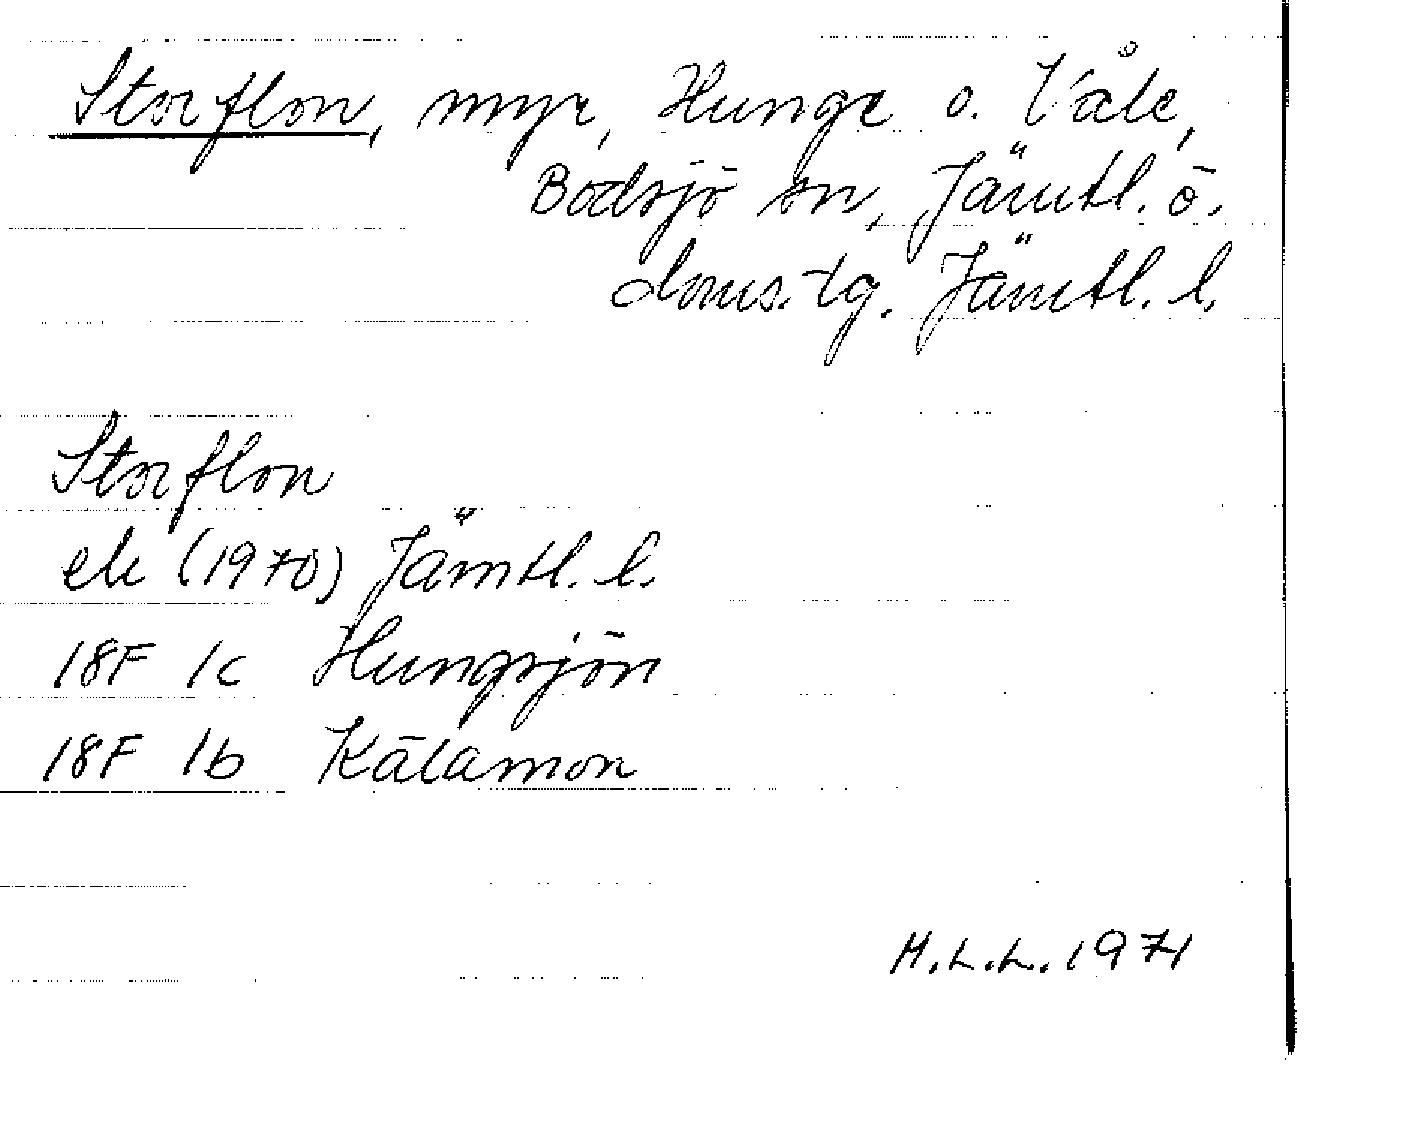 Storflon, myr, Hunge o. Våle,
Bodsjö sn, Jämtl. ö.
doms.tg. Jämtl. l.
Storflon
ek (1970) Jämtl. l.
18F 1c Hungsjön
18F 1b Kälamon
M.L.L. 1971